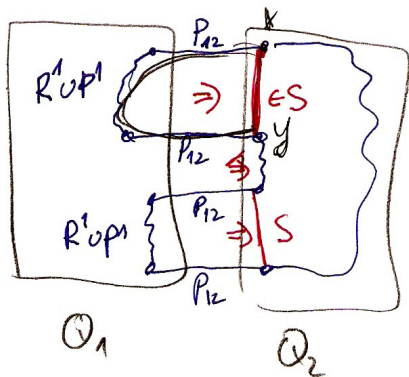 P12 x
R¹∪P¹ ⇒ ∈S
P12 y
⇒
P12
R¹∪P¹ ⇒ S
P12
Q1 Q2